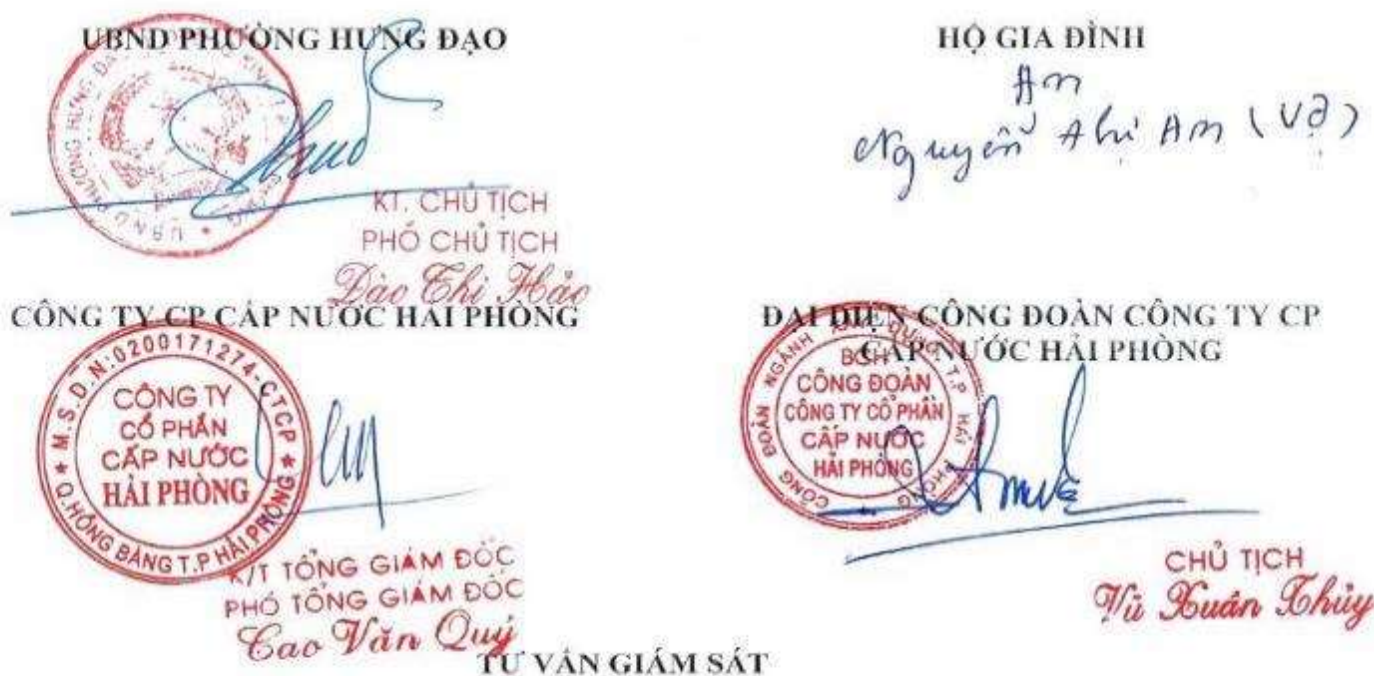 UBND PHƯỜNG HƯNG ĐẠO
KT. CHỦ TỊCH
PHÓ CHỦ TỊCH
Đào Thị Hảo
HỘ GIA ĐÌNH
Am
Nguyễn Thị Am (Vợ)
CÔNG TY CP CẤP NƯỚC HẢI PHÒNG
M.S.D.N:0200171274-CTCP
CÔNG TY
CỔ PHẦN
CẤP NƯỚC
HẢI PHÒNG
Q.HỒNG BÀNG T.P HẢI PHÒNG
K/T TỔNG GIÁM ĐỐC
PHÓ TỔNG GIÁM ĐỐC
Cao Văn Quý
ĐẠI DIỆN CÔNG ĐOÀN CÔNG TY CP
CẤP NƯỚC HẢI PHÒNG
BCH
CÔNG ĐOÀN
CÔNG TY CỔ PHẦN
CẤP NƯỚC
HẢI PHÒNG
CHỦ TỊCH
Vũ Xuân Thủy
TƯ VẤN GIÁM SÁT